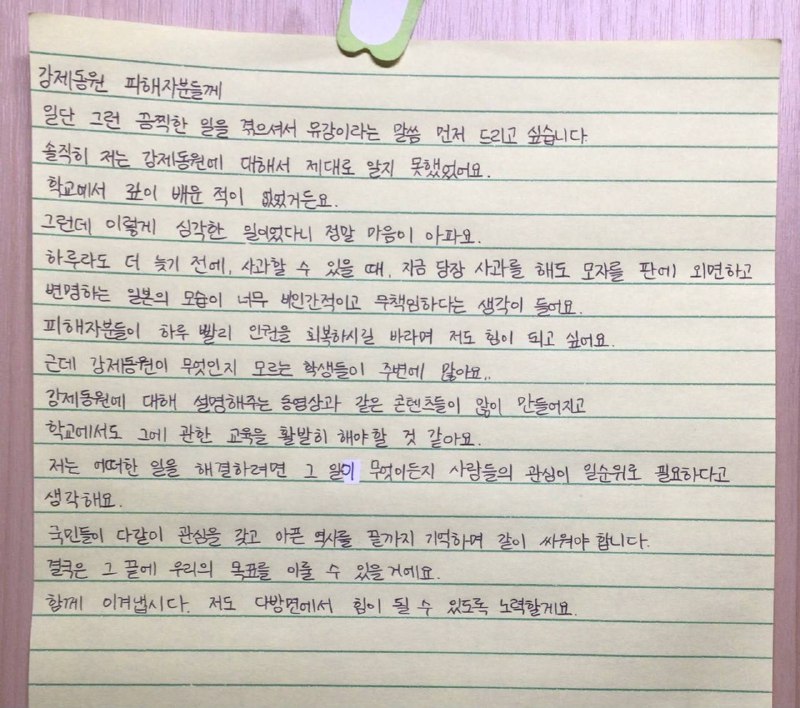 강제동원 피해자분들께
일단 그런 끔찍한 일을 겪으셔서 유감이라는 말씀 먼저 드리고 싶습니다.
솔직히 저는 강제동원에 대해서 제대로 알지 못했었어요.
학교에서 깊이 배운 적이 없었거든요.
그런데 이렇게 심각한 일이었다니 정말 마음이 아파요.
하루라도 더 늦기 전에, 사과할 수 있을 때, 지금 당장 사과를 해도 모자를 판에 외면하고
변명하는 일본의 모습이 너무 비인간적이고 무책임하다는 생각이 들어요.
피해자분들이 하루 빨리 인권을 회복하시길 바라며 저도 힘이 되고 싶어요.
근데 강제동원이 무엇인지 모르는 학생들이 주변에 많아요..
강제동원에 대해 설명해주는 동영상과 같은 콘텐츠들이 많이 만들어지고
학교에서도 그에 관한 교육을 활발히 해야할 것 같아요.
저는 어떠한 일을 해결하려면 그 일이 무엇이든지 사람들의 관심이 일순위로 필요하다고
생각해요.
국민들이 다같이 관심을 갖고 아픈 역사를 끝까지 기억하며 같이 싸워야 합니다.
결국은 그 끝에 우리의 목표를 이룰 수 있을거에요.
함께 이겨냅시다. 저도 다방면에서 힘이 될 수 있도록 노력할게요.